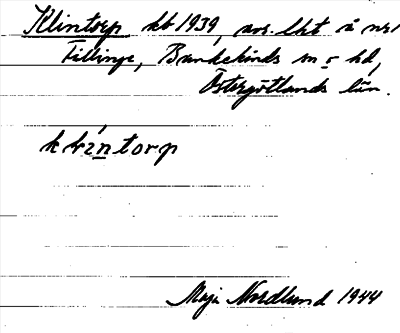 Klintorp kb 1939, avs. lht å nr 1
Fillinge, Bankekinds sn o hd,
Östergötlands län.
klintorp
Maja Nordlund 1944